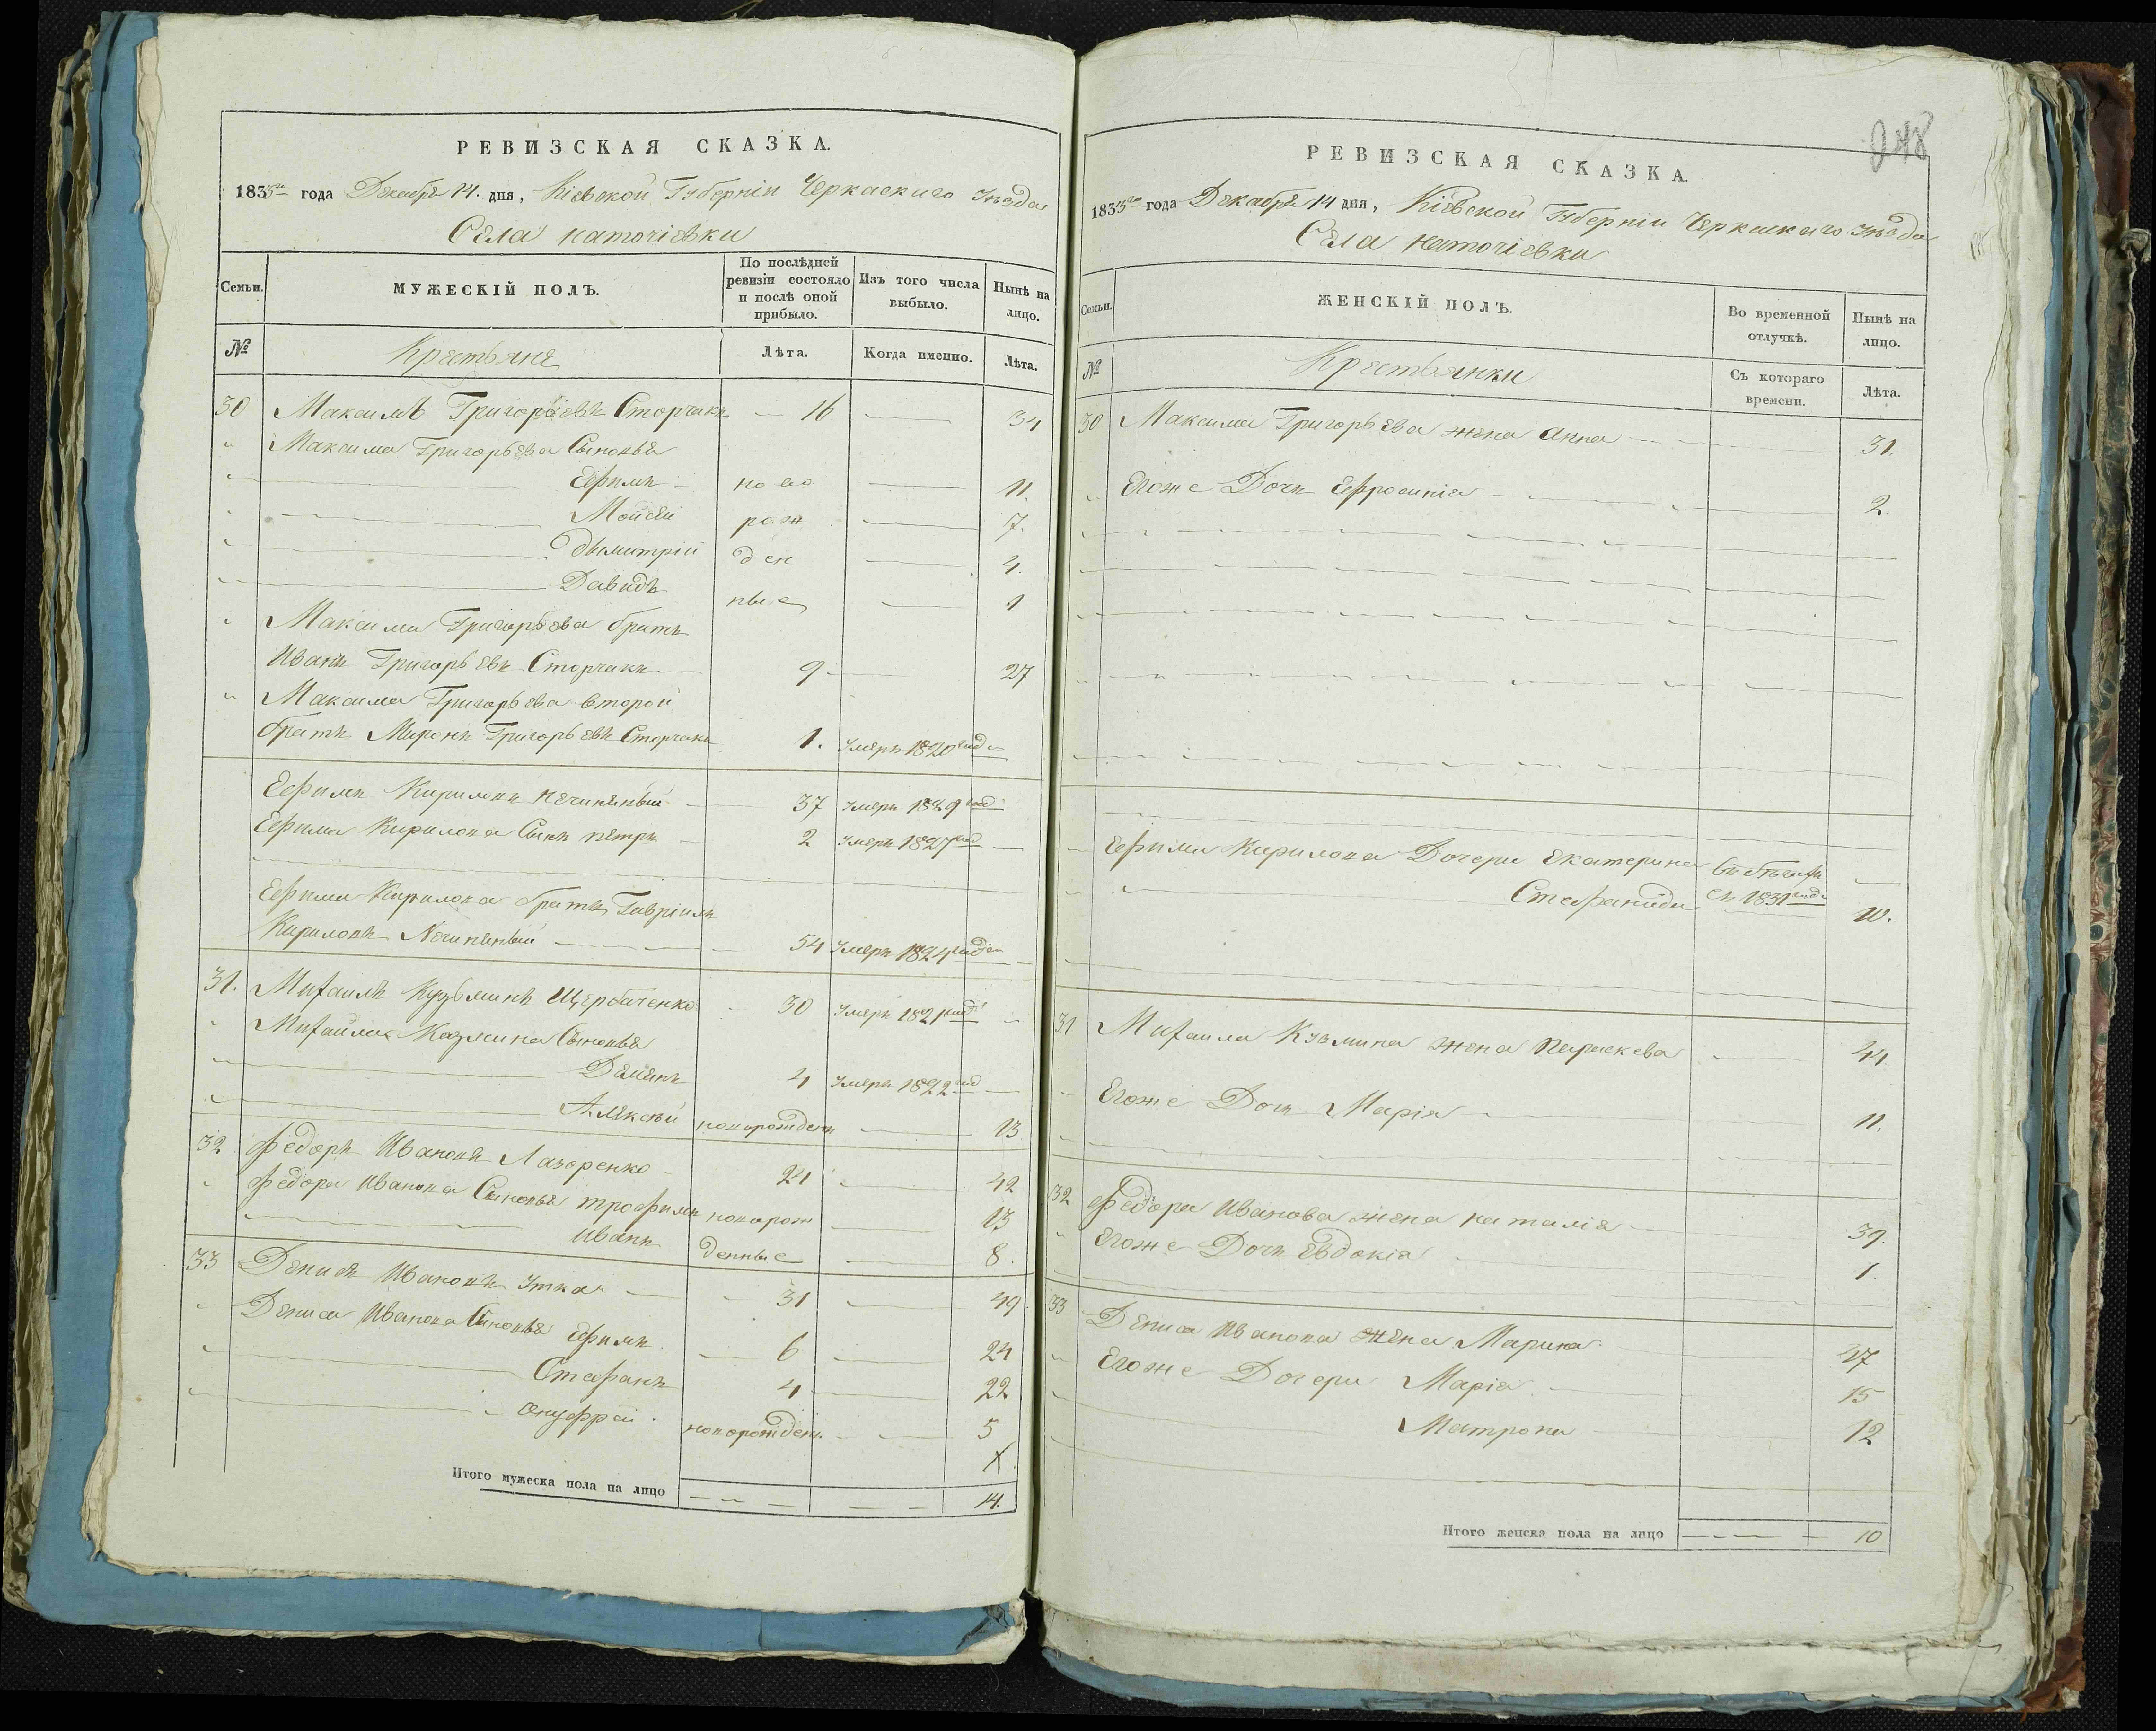 РЕВИЗСКАЯ СКАЗКА.
1835го года Декабря 14. дня, Кіевской Губерніи Черкаскаго Уезда
Села
Семьи.
МУЖЕСКІЙ ПОЛЪ.
По послѣдней ревизіи состояло и послѣ оной прибыло.
Изъ того числа выбыло.
Нынѣ на лицо.
№
Крестьяне
Лѣта.
Когда именно.
Лѣта.
30 Максимъ Григорьевъ Сторчакъ — 16 — 34
" Максима Григорьева Сыновья
" — Ефимъ ново — 11.
" — Мойсей рож — 7.
" — Дымитрій ден — 4.
" — Давидъ ные — 1
" Максима Григорьева братъ
Иванъ Григорьевъ Сторчакъ — 9 — 27
" Максима Григорьева второй
братъ Миронъ Григорьевъ Сторчакъ 1. Умеръ 1820 года
Ефимъ Кириловъ — 37 Умеръ 1829 год —
Ефима Кирилова Сынъ петръ — 2 Умеръ 1827 год —
Ефима Кирилова братъ Гавріилъ
Кириловъ — 54 Умеръ 1824 года —
31. Михаилъ Кузьминъ Щербаченко — 30 Умеръ 1821 год —
" Михаила Казмина Сыновья
" — Деменъ 4 Умеръ 1822 год —
" — Алексѣй новорожденъ — 13
32 Федоръ Ивановъ Лазоренко — 24 — 42
" Федора Иванова Сыновья трофимъ новорож — 13
— Иванъ денные — 8.
33 Денисъ Ивановъ Утка — 31 — 49.
" Дениса Иванова Сыновья Ефимъ — 6 — 24
" — Стефанъ 4 — 22
" — Онуфрей. новорожден. — 5
X.
Итого мужеска пола на лицо — — — — — 14.
248
РЕВИЗСКАЯ СКАЗКА.
1835го года Декабря 14 дня, Кіевской Губерніи Черкаскаго Уезда
Села
Семьи.
ЖЕНСКІЙ ПОЛЪ.
Во временной отлучкѣ.
Нынѣ на лицо.
№
Крестьянки
Съ котораго времени.
Лѣта.
30 Максима Григорьева жена Анна — — 31.
" Егоже Дочь Ефросинія — — 2.
Ефима Кирилова Дочери Екатерина —
— Стефанида съ 1831 года 10.
31 Михаила Кузмина жена Параскева — 44.
Егоже Дочь Марія — 11.
32 Федора Иванова жена наталія — 39.
" Егоже Дочь Евдокія — 1.
33 Дениса Иванова жена Марина — 47
" Егоже Дочери Марія — 15
— Матрона — 12
Итого женска пола на лицо — — — — 10